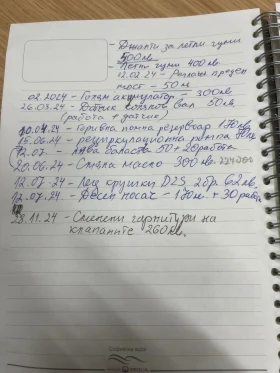 - Джанти за летни гуми
500лв
- Летни гуми 400лв
12.02.24 - Ремонт преден
мост - 50лв
02.2024 - Голям акумулатор - 300лв
26.03.24 - Датчик колянов вал 50лв
(работа + датчик)
10.04.24 - Горивна помпа резервоар 170лв
15.06.24 - рециркулационна помпа
12.07. лява баласта 50 + 20 работа
20.06.24 - Смяна масло 300лв
12.07.24 - Лед крушки D2S 2бр. 62лв.
12.07.24 - Десен носач - 170лв + 30 работа
28.11.24 - Сменени гарнитури на
клапаните 260лв.
Софийска вода